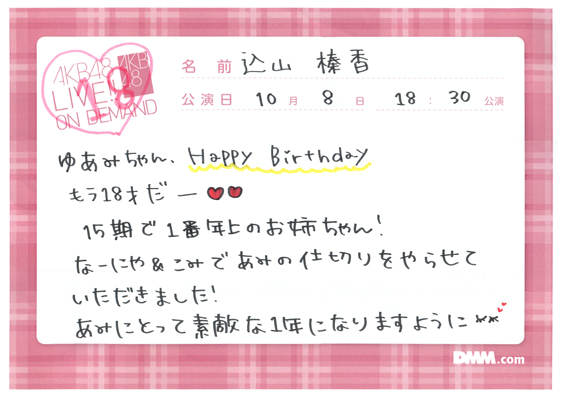 AKB48
LIVE!!
ON DEMAND
AKB
48
18
名前 込山 榛香
公演日 10月 8日 18:30 公演
ゆあみちゃん、Happy Birthday
もう18才だー
15期で1番年上のお姉ちゃん!
なーにゃ&こみであみの仕切りをやらせて
いただきました!
あみにとって素敵な1年になりますように
DMM.com